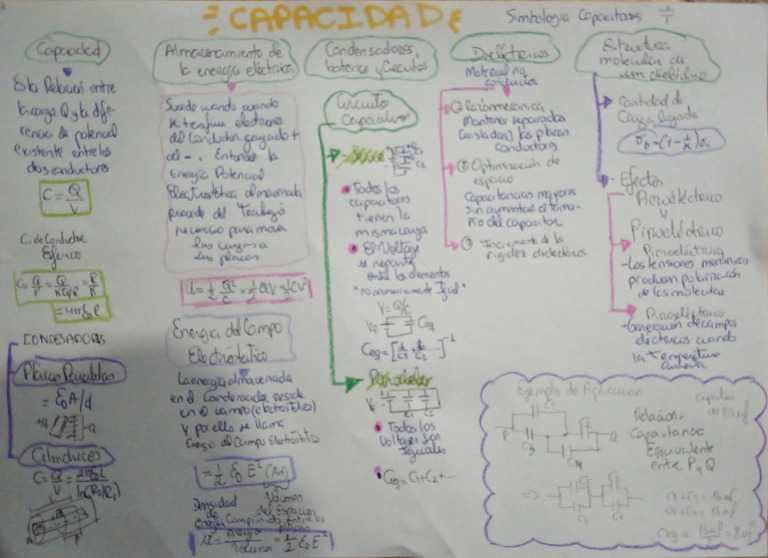 CAPACIDAD
Simbología Capacitores
Capacidad
Es la Relación entre
la carga Q y la dife
rencia de potencial
existente entre los
dos conductores
C = Q/V
C. de Conductor
Esférico
C = Q/V = Q/KQ/R = R/K
= 4πε₀R
CONDESADORES
Placas Paralelas
= ε₀A/d
+Q
-Q
Cilindricos
C = Q/V = 2πε₀L/ln(R₂/R₁)
Almacenamiento de
la energía eléctrica
Sucede cuando cuando
se transfiere electrones
del Conductor cargado +
al -. Entonces la
Energía Potencial
Electrostática almacenada
procede del Trabajo
necesario para mover
las cargas a
las placas
U = ½ Q²/C = ½ QV = ½ CV²
Energía del Campo
Electrostático
La energía almacenada
en el Condensador reside
en el campo (electrostático)
y por ello se llama
Energía del Campo Electrostático
= ½ ε₀ E² (Ad)
Densidad
de
Energía
Volumen
del Espacio
Comprimido entre las
placas
u = Energía/Volumen = ½ ε₀ E²
Condensadores,
baterías y Circuitos
Circuitos
Capacitivos
Serie
C₁
C₂
Todos los
capacitores
tienen la
misma carga
El Voltaje
se reparte
entre los elementos
"no necesariamente Igual"
V = Q/C
Ceq
Ceq = [1/C₁ + 1/C₂]⁻¹
Paralelos
Todos los
Voltajes son
Iguales
Ceq = C₁ + C₂ + ...
Dieléctricos
Material no
conductor
Mantener separadas
(aisladas) las placas
conductoras
② Optimización de
espacio
Capacitancias mayores
sin aumentar el tama-
ño del capacitor
③ Incremento de la
rigidez dieléctricos
Estructura
molecular de
un dieléctrico
Cantidad de
Carga ligada
- Efectos
Piezoeléctrico
y
Piroeléctrico
Piezoeléctrico
- Las tensiones mecánicas
producen polarización
de las moléculas
Piroeléctrico
- Generación de campos
eléctricos cuando
la temperatura
aumenta
Ejemplo de Aplicación
P
C₃
C₄
Q
Relación
Capacitancia
Equivalente
entre P y Q